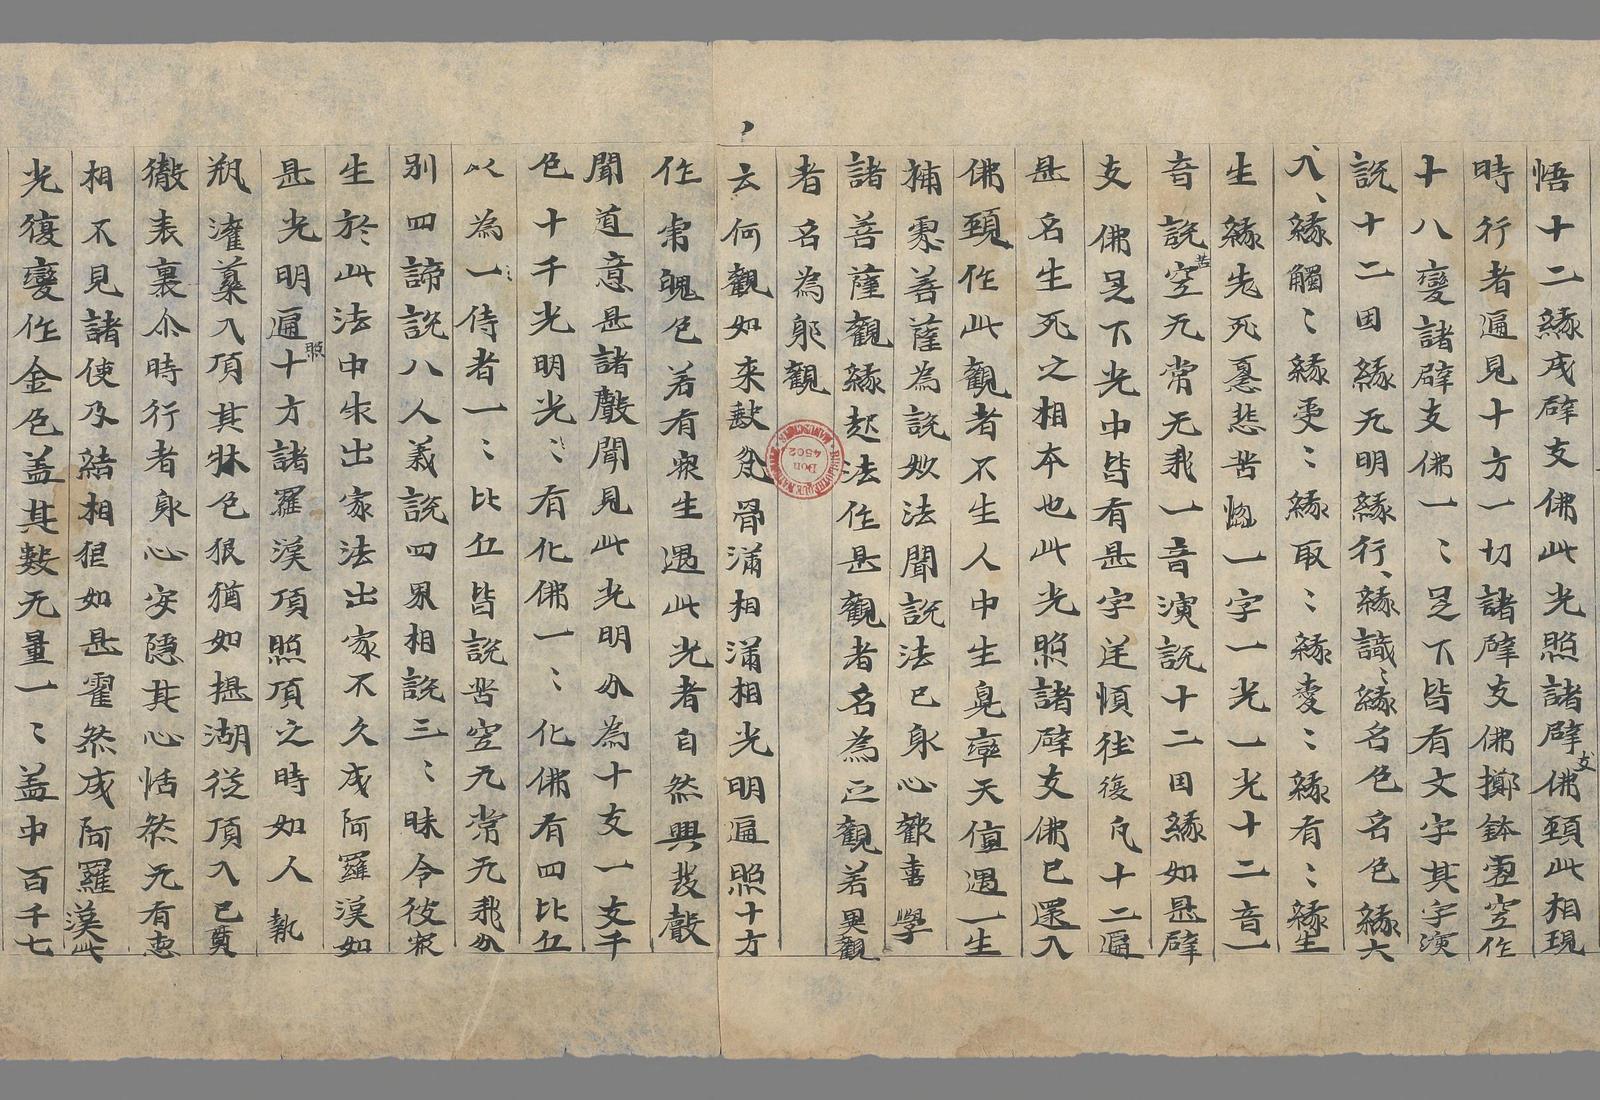 悟十二緣成辟支佛此光照諸辟支佛頸此相現
時行者遍見十方一切諸辟支佛擲鉢虛空作
十八變諸辟支佛一〻足下皆有文字其字演
說十二因緣无明緣行〻緣識〻緣名色名色緣六
入〻緣觸〻緣受〻緣取〻緣愛〻緣有〻緣生
生緣老死憂悲苦惱一字一光一光十二音一
音說苦空无常无我一音演說十二因緣如是辟
支佛足下光中皆有是字逆順往復凡十二遍
是名生死之相本也此光照諸辟支佛已還入
佛頸作此觀者不生人中生兜率天值遇一生
補處菩薩為說妙法聞說法已身心歡喜學
諸菩薩觀緣起法作是觀者名為正觀若異觀
者名為邪觀
云何觀如來缺瓫骨滿相滿相光明遍照十方
作虎魄色若有衆生遇此光者自然興發聲
聞道意是諸聲聞見此光明分為十支一支千
色十千光明光〻有化佛一〻化佛有四比丘
以為侍者一〻比丘皆說苦空无常无我分
別四諦說八人義說四界相說三〻昧令彼衆
生於此法中求出家法出家不久成阿羅漢如
是光明遍照十方諸羅漢頂照頂之時如人執
瓶灌藥入頂其牀色狠猶如醍湖從頂入已貫
徹表裏尒時行者身心安隱其心恬然无有惡
相不見諸使及結相狠如是霍然成阿羅漢此
光復變作金色盖其數无量一〻盖中百千七
BIBLIOTHEQUE NATIONALE MANUSCRITS
Don 4502